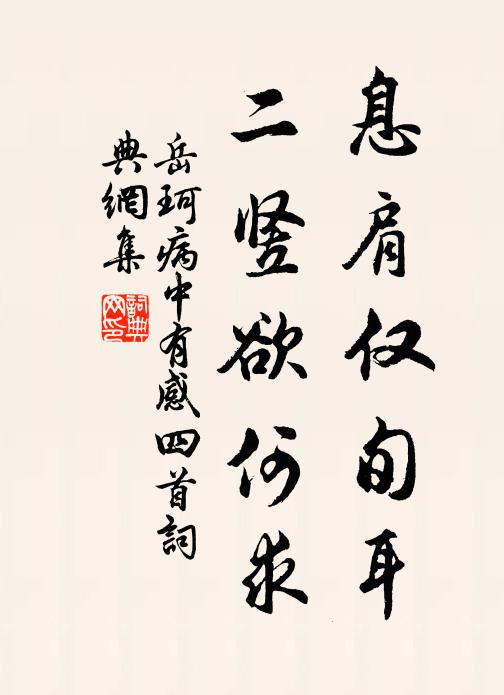 息肩仅旬耳
二竖欲何求
岳珂病中有感四首詞
典網集
詞典
网印